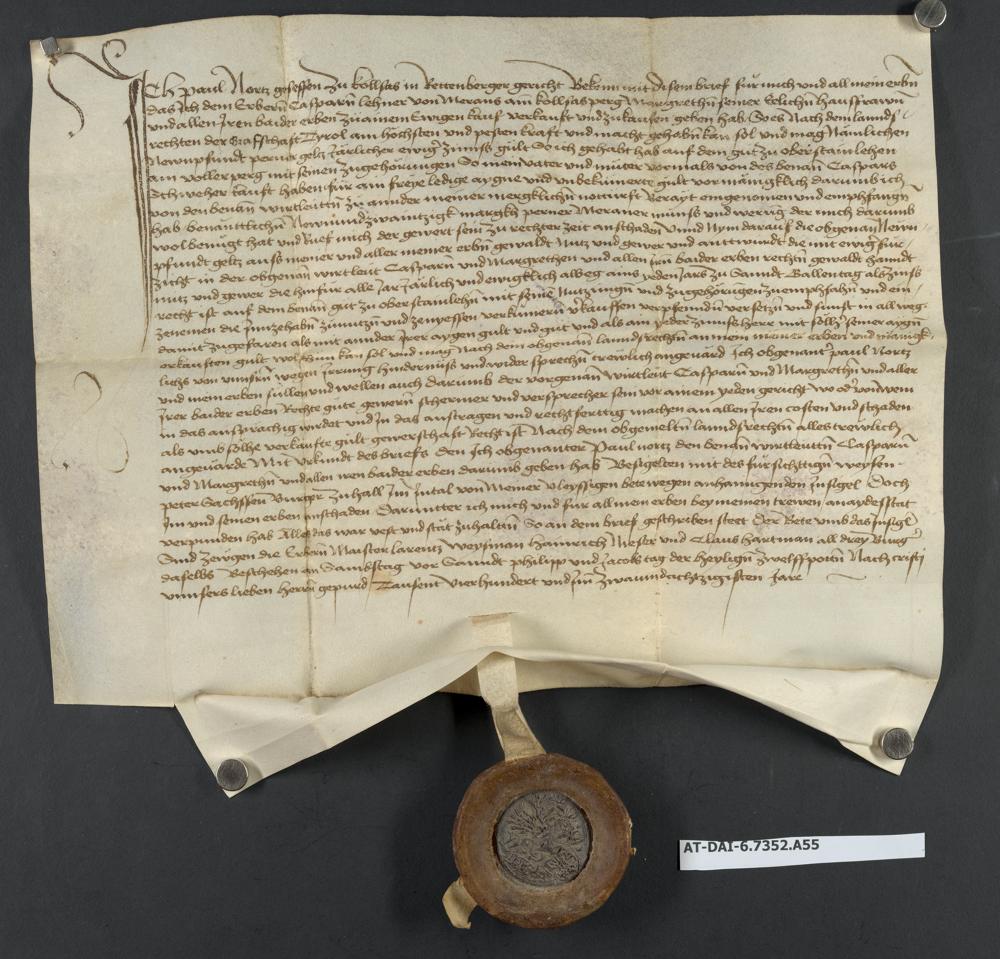 Ich Paul Nortz gesessen zu Kollsas in Rettenberger gericht Bekenn mit disem brief für mich und all mein erbn
das ich dem Erbern Casparn lehner von Merans am kollsasperg Margrethn seiner Elichn haussfrawn
und allen Iren baider erben zu ainem Ewigen kauf verkauft und zukaufen geben hab So es Nach dem lannds
rechten der Grafschaft Tyrol am höchsten und pesten kraft und macht gehabn kan sol und mag Nämlichen
Newn pfundt perner geltz Järlicher ewigr zinnss gült So ich gehabt hab auf dem gut zu oberstainlehen
am vollerperg mit seinen zugehörungen So mein vater und muter vormals von des benan Caspars
Schweher kauft haben für ain freye ledige aygne und unbekumerte gült vor mänigklich darumb ich
von den benan wirtleuttn zu annder meiner mergklichn notturft Berayt eingenomen und emphfangn
hab benanttlichn Newnundzwaintzigk margkh perner Meraner münss und werung der mich darumb
wol benügt hat und Ruef mich der gewert sein zu rechter zeit an schaden Unnd Nym darauf die obgenan Newn
pfundt geltz auss meiner und aller meiner erbn gewaldt Nutz und gewer und anttwurdt die mit ewigr für
zicht in der obgenan wirtleut Casparn und Margrethen und allen irn baider erben rechtn gewaldt hanndt
nutz und gewer die hinfür alle Jar Järlich und ewigklich albeg ains yeden Jars zu Sanndt Gallentag als zinss
recht ist auf dem benan gut zu oberstainlehn mit seinen Nutzungn und zugehörungen zu emphfahn und ein
zenemen die Innzehabn zunutzn und zenyessen verkumern verkauffen verpfenndn versetzn und sunst in all weg
damit zugefaren als mit annder Irer aygen gült und gut und als ain yeder zinnss Herr mit sollher seiner aygn
erkauften gült wol thun kan sol und mag nach dem obgenan lanndsrechtn an mein meiner erben und mänigk
lichs von unnsern wegen Irrung hindernuss und wider sprechn trewlich angevärd Ich obgenant Paul Nortz
und mein erben süllen und wellen auch darumb der vorgenan wirtleut Casparn und Margrethn und aller
Irer baider erben Rechte gute gewern schermer und versprecher sein vor ainem yeden gericht wo oder von wem
in das ansprachig wirdet und In das austragen und recht ferttig machen an allen Iren costen und schaden
als umb sölhe verkaufte gült gewerschaft Recht ist Nach dem obgemeltn lanndsrechtn alles trewlich
angevärde Mit urkundt des briefs den Ich obgenanter Paul nortz den benan wirtleuttn Casparn
und Margrethn und allen iren baider erben darumb geben hab Besigelten mit des fürsichttign weysen
peter Sachssen Burger zu hall Im Intal von Meiner vleyssigen bete wegen anhanngenden Insigel Doch
Im und seinen erben an schaden Darunter ich mich und für all mein erben bey meinen trewen an aydesstat
verpunden hab Alles das war vest und stät zuhaltn So an dem brief geschriben steet Der Bete umb das Insigl
Sind zewgen die Erbern Maister larentz Weysman Hainrich Nieser und Claus hartman all drey Burgr
daselbs Beschehen an Sambstag vor Sanndt philipp und Jacobs tag der heyligen zwelffpoten Nach cristi
unnsers lieben herrn gepurd Tausent vierhundert und Im zwaiundachtzigisten Jare
AT-DAI-6.7352.A55